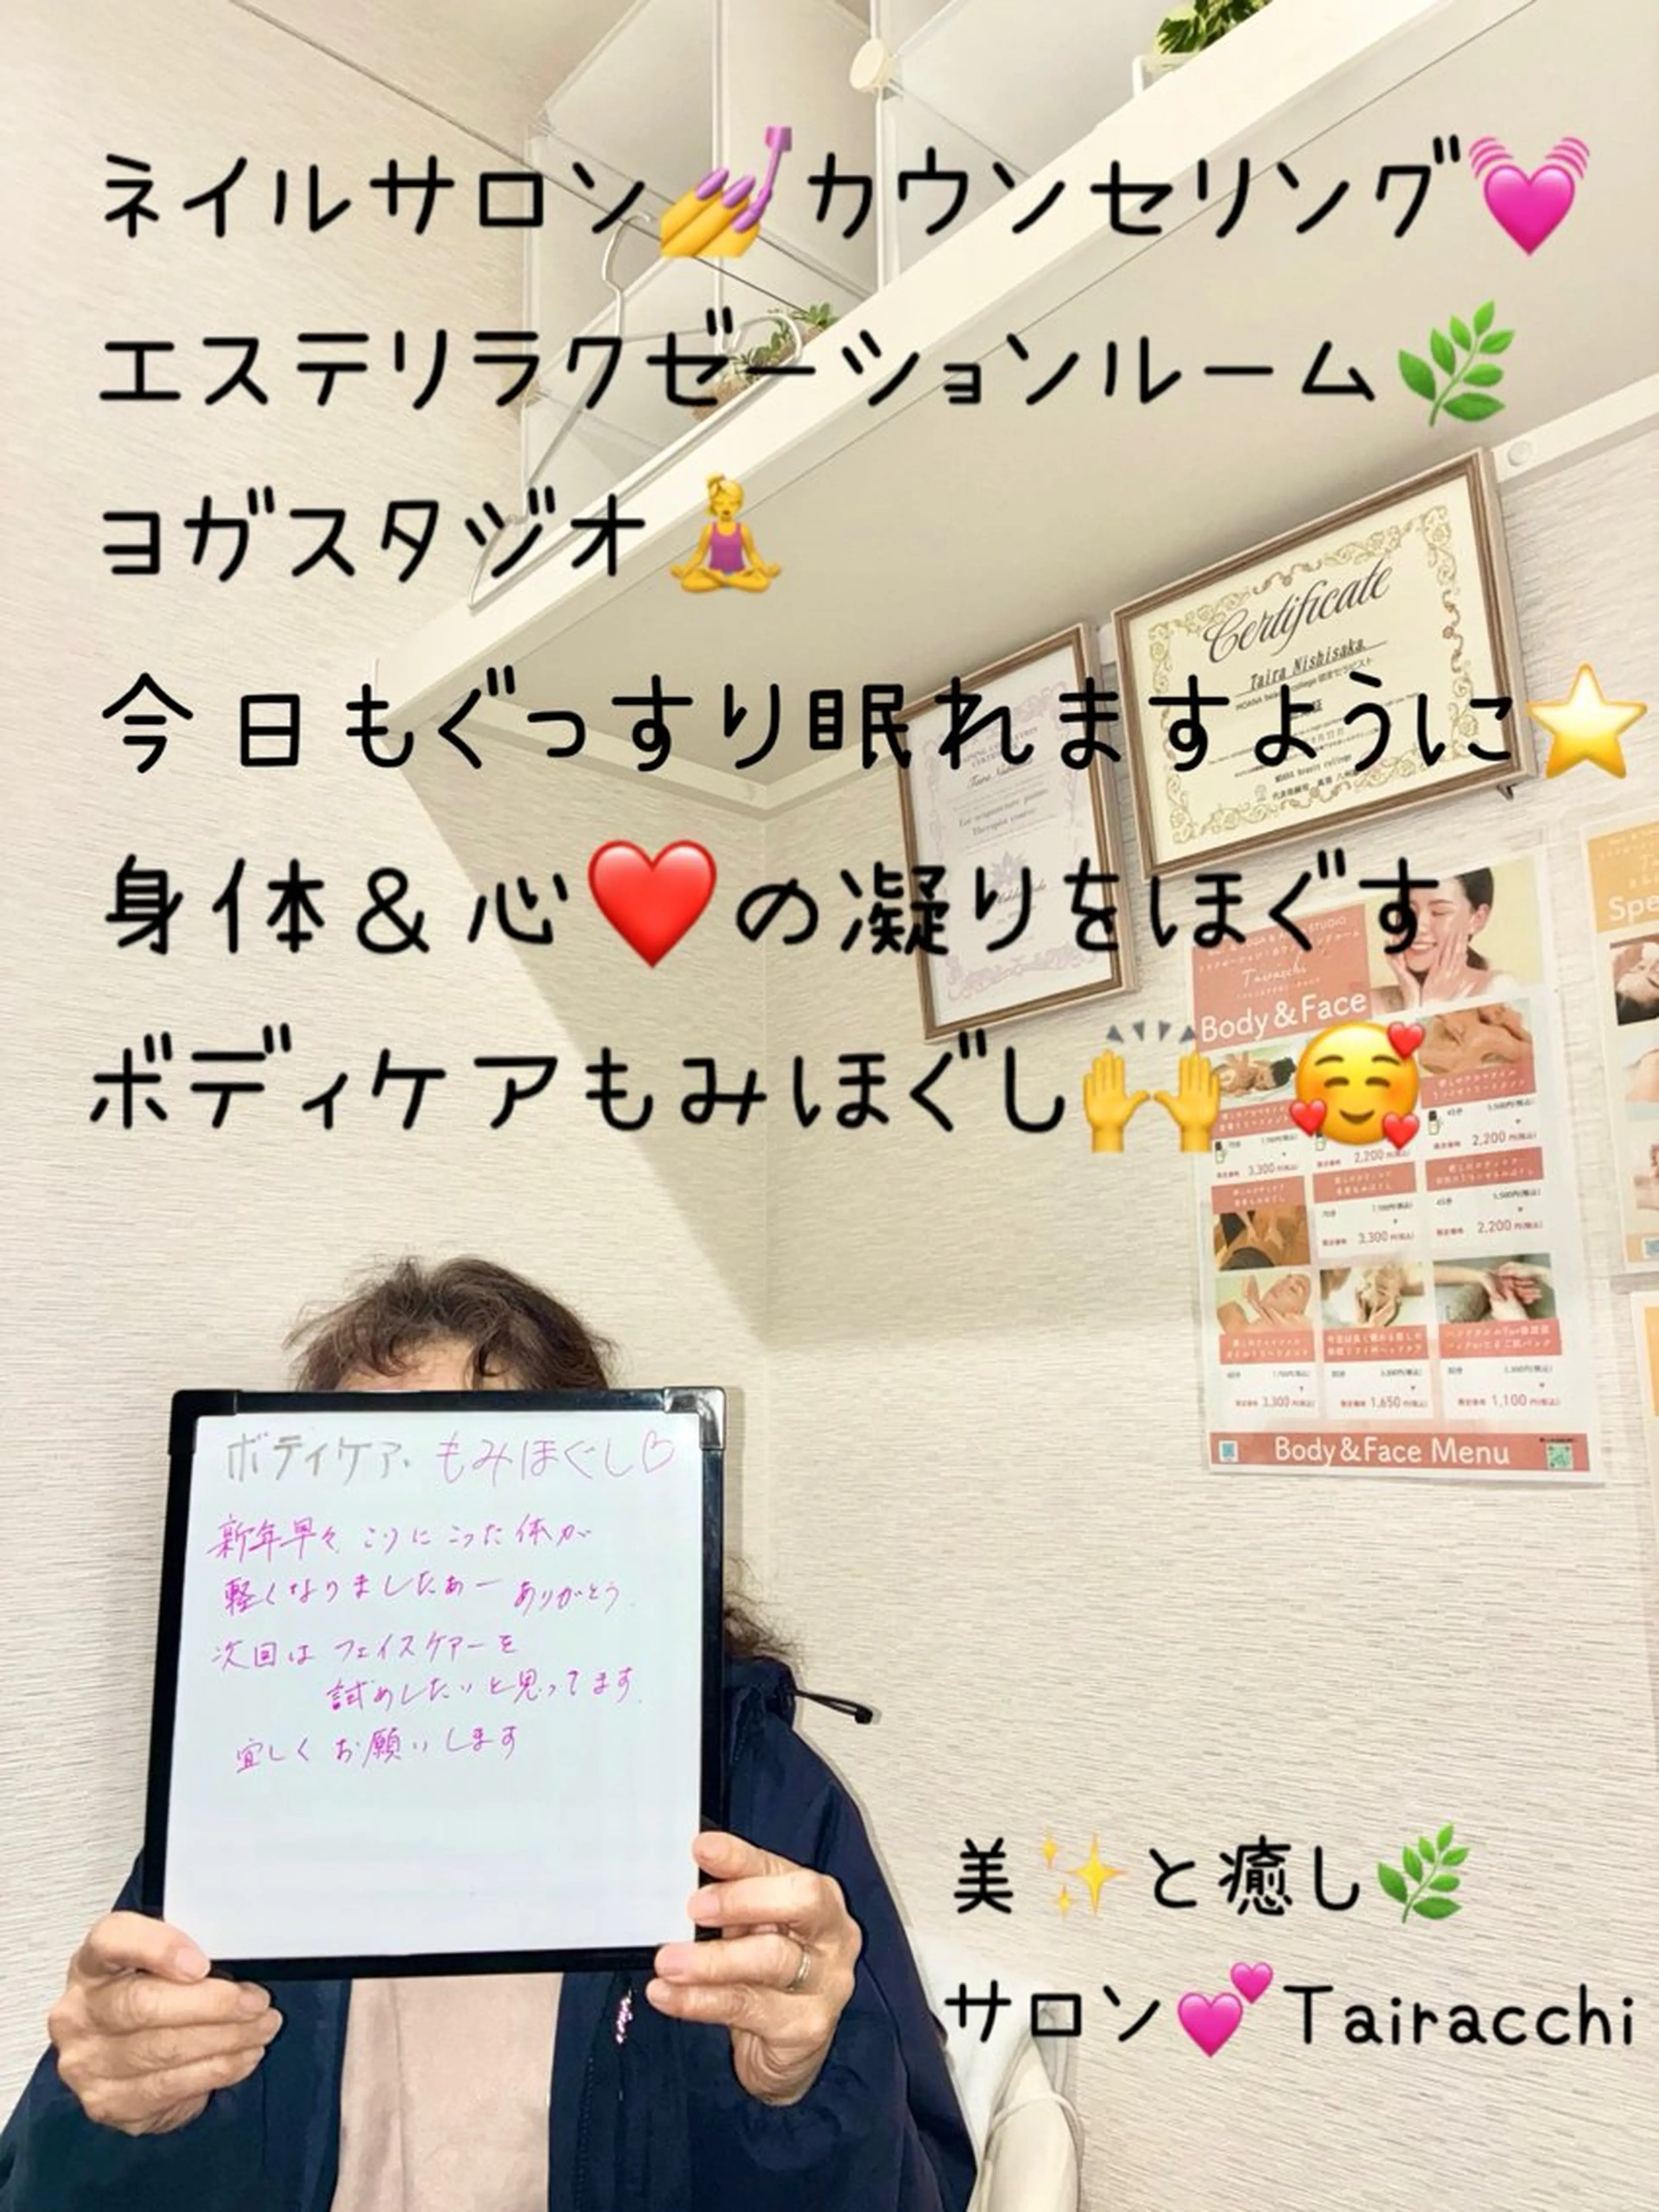 ネイルサロン💅カウンセリング💓
エステリラクゼーションルーム🌿
ヨガスタジオ🧘‍♀️
今日もぐっすり眠れますように⭐
身体＆心❤️の凝りをほぐす
ボディケアもみほぐし🙌🥰
Certificate
Taira Nishisaka
Tairacchi
Body&Face
3,300
2,200
2,200
3,300
2,200
3,300
1,650
1,100
Body&Face Menu
Spe
ボディケア、もみほぐし♡
新年早々こりにこった体が
軽くなりましたあー ありがとう
次回はフェイスケアーを
試めしたいと思ってます
宜しくお願いします
美✨と癒し🌿
サロン💕Tairacchi